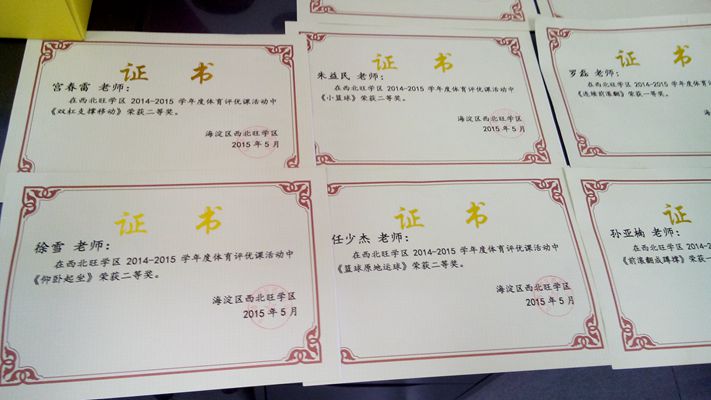 证 书
宫春雷 老师：
在西北旺学区 2014-2015 学年度体育评优课活动中
《双杠支撑移动》荣获二等奖。
海淀区西北旺学区
2015 年 5 月
证 书
朱益民 老师：
在西北旺学区 2014-2015 学年度体育评优课活动中
《小篮球》荣获二等奖。
海淀区西北旺学区
2015 年 5 月
证
罗磊 老师：
在西北旺学区 2014-2015 学年度体育评
《连续前滚翻》荣获一等奖。
海淀区西
2015
证 书
徐雪 老师：
在西北旺学区 2014-2015 学年度体育评优课活动中
《仰卧起坐》荣获二等奖。
海淀区西北旺学区
2015 年 5 月
证 书
任少杰 老师：
在西北旺学区 2014-2015 学年度体育评优课活动中
《篮球原地运球》荣获二等奖。
海淀区西北旺学区
2015 年 5 月
证
孙亚楠 老师：
在西北旺学区 2014-2015 学
《前滚翻成蹲撑》荣获一
海